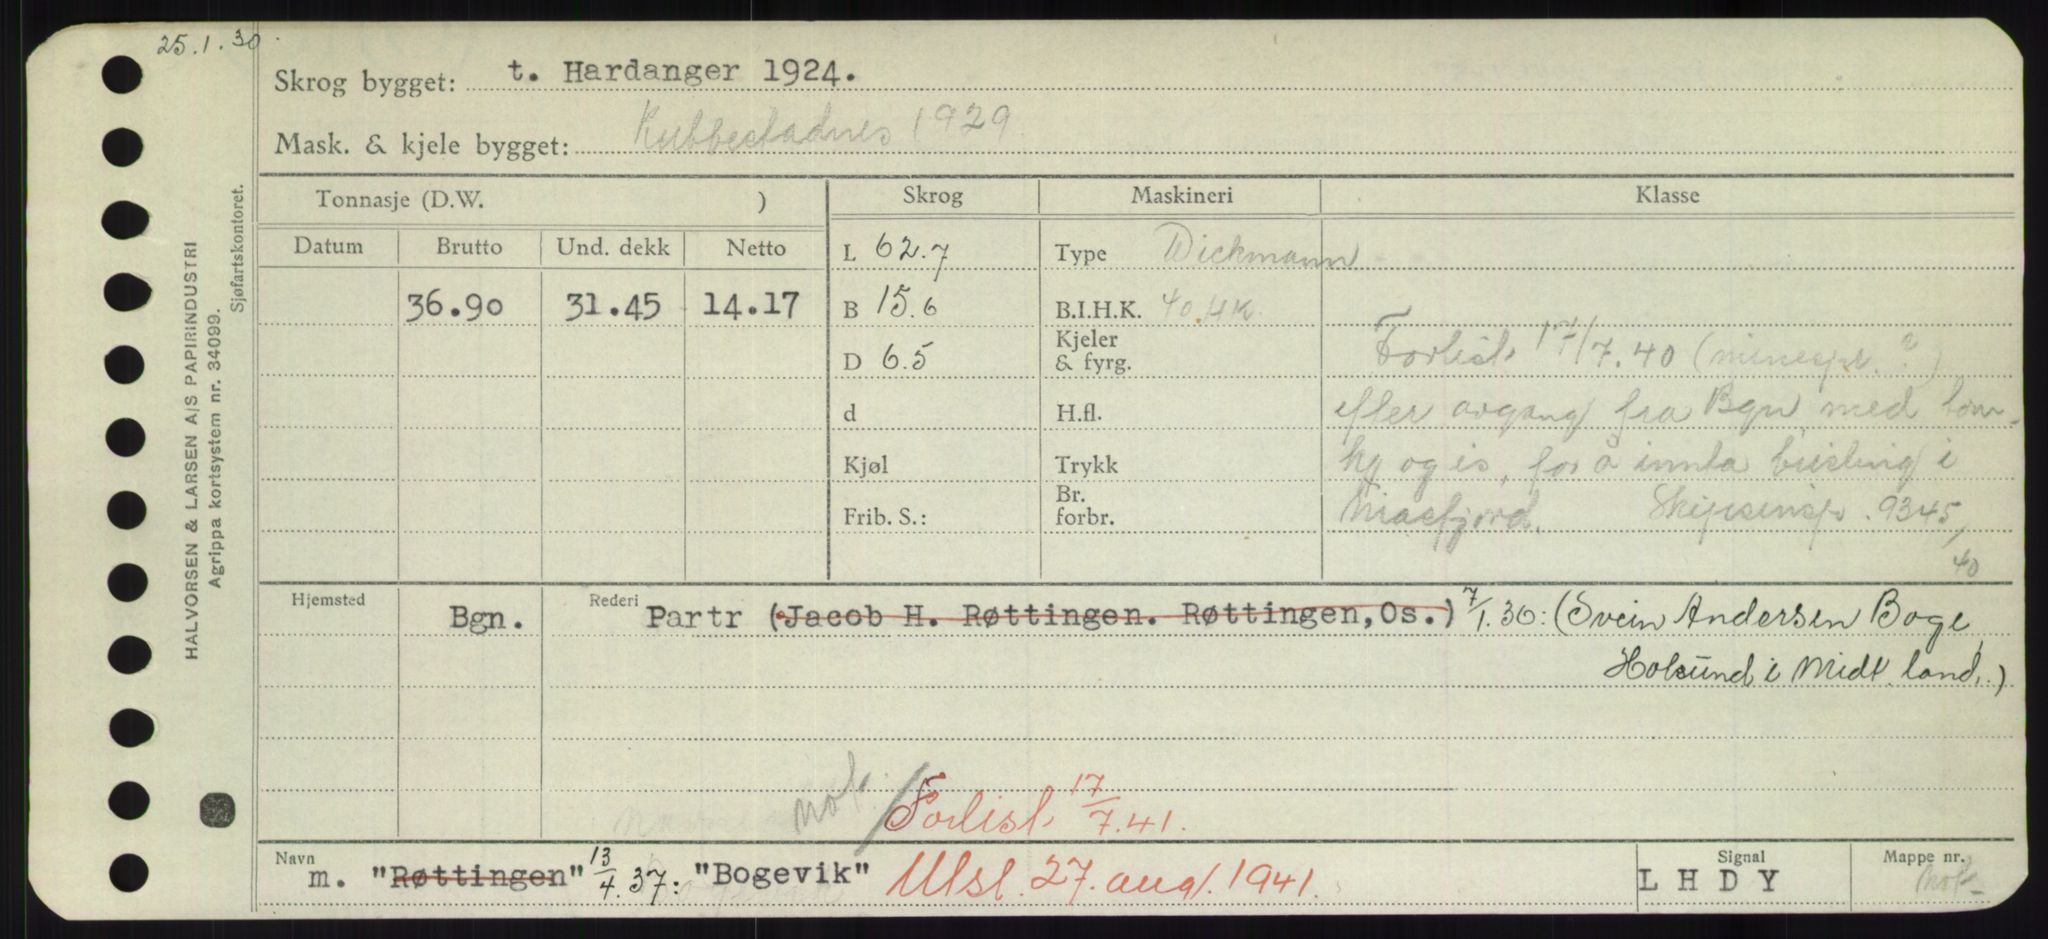 25.1.30.
Skrog bygget: t. Hardanger 1924.
Mask. & kjele bygget: Kubbestadnes 1929
Tonnasje (D.W. ) Skrog Maskineri Klasse
Datum Brutto Und. dekk Netto L 62.7 Type Wickmann
36.90 31.45 14.17 B 15.6 B.I.H.K. 40 HK.
D 6.5 Kjeler & fyrg. Forlist 17/7.40 (minespr. ?)
d H.fl. efter avgang fra Bgn med tom-
Kjøl Trykk og is, for å innta brisling i
Frib. S.: Br. forbr. Masfjord. Skipsinsp. 9345,
40
Hjemsted Bgn. Rederi Partr (Jacob H. Røttingen. Røttingen, Os.) 7/1.30: (Svein Andersen Boge,
Holsund i Midt. land.)
not. Forlist 17/7.41.
Navn m. "Røttingen" 13/4.37: "Bogevik" Utsl. 27. aug. 1941. Signal LHDY Mappe nr. not.
HALVORSEN & LARSEN A/S PAPIRINDUSTRI
Agrippa kortsystem nr. 34099.
Sjøfartskontoret.